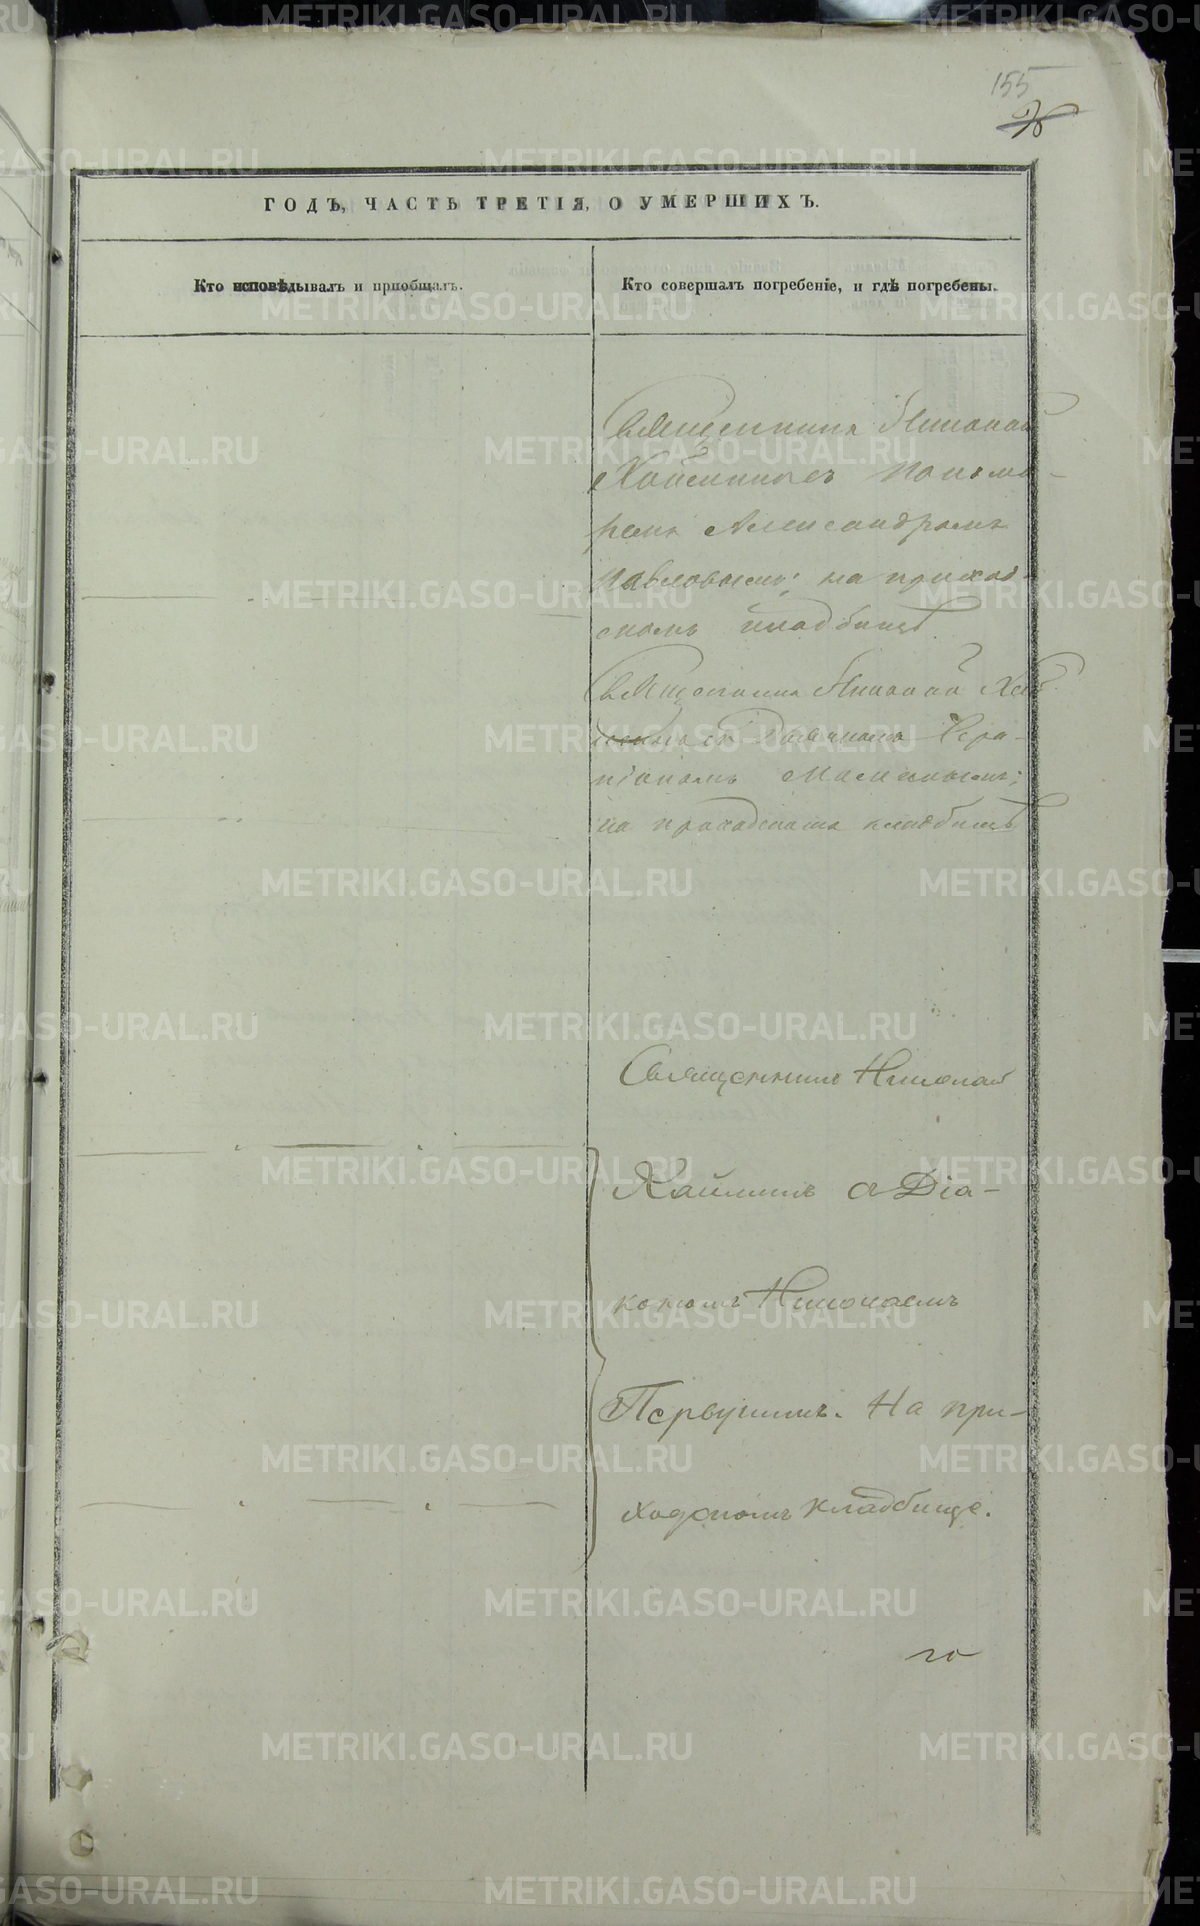 155
ГОДЪ, ЧАСТЬ ТРЕТІЯ, О УМЕРШИХЪ.
Кто исповѣдывалъ и приобщалъ.
Кто совершалъ погребеніе, и гдѣ погребены.
Священникъ Николай
Хайминъ съ понома-
ремъ Александромъ
Павловымъ; на приход-
скомъ кладбищѣ
Священникъ Николай Хай-
минъ съ Діакономъ Сера-
піономъ
на приходскомъ кладбищѣ
Священникъ Николай
Хайминъ с Діа-
кономъ Николаемъ
Первушинъ. На при-
ходскомъ кладбище.
го
METRIKI.GASO-URAL.RU